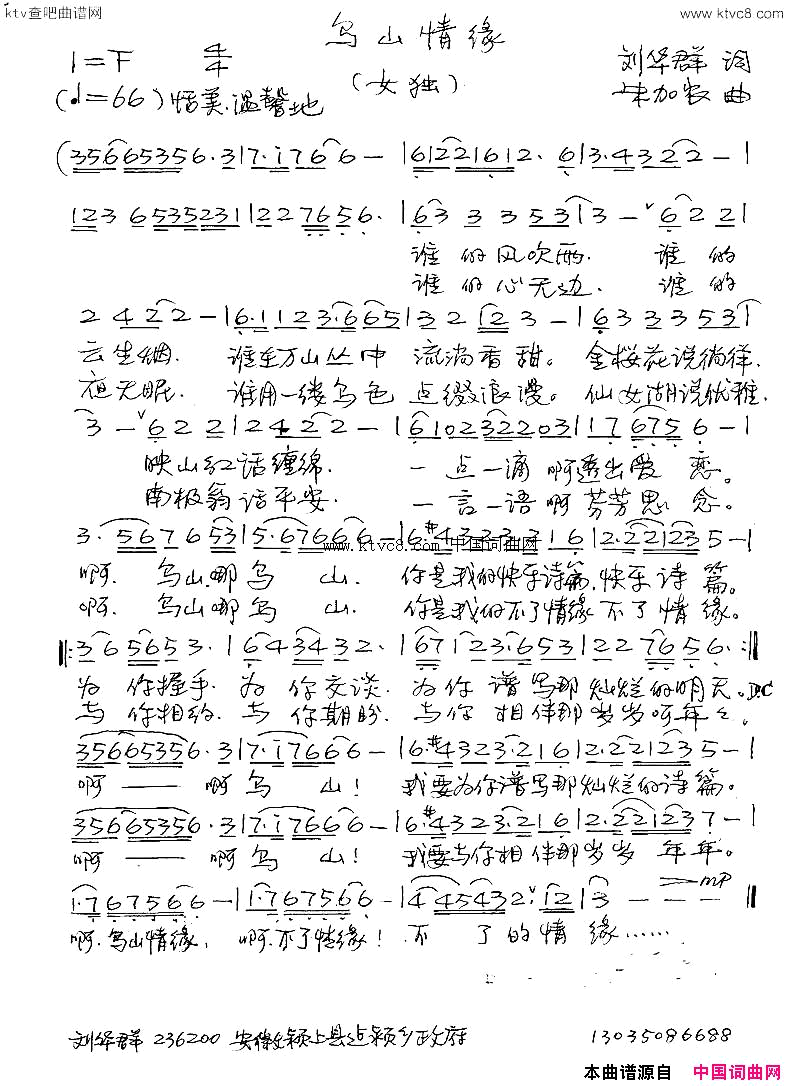 ktv查吧曲谱网
www.ktvc8.com
乌山情缘
1=F 4/4
刘华群 词
(女独)
朱加农 曲
(♩=66) 恬美.温馨地
(35665356·3|7·i766-|61221612·6|3·4322-|
123 6535231|227656·|633353|3-ˇ622|
谁的风吹雨. 谁的
谁的心无边. 谁的
2422-|6·1123·665|32123-|6333531|
云生烟. 谁在万山丛中 流淌香甜。 金桜花说徜徉.
夜无眠. 谁用一缕乌色 点缀浪漫。 仙女湖说优雅.
3-ˇ622|2422-|6102322031|176756-|
映山红话缠绵. 一点一滴啊透出爱恋。
南极翁话平安. 一言一语啊芬芳思念。
3·567653|5·67666-|6·#43233216|2·221235-|
www.ktvc8.com 中国词曲网
啊. 乌山哪乌山. 你是我的快乐诗篇,快乐诗篇。
啊. 乌山哪乌山. 你是我的不了情缘不了情缘。
‖:365653·|643432·|67123·653|227656·:‖
为你握手.为你交谈.为你谱写那灿烂的明天。D.C
与你相约.与你期盼.与你相伴那岁岁呵年々.
35665356·3|7·i7666-|6·#4323·216|2·221235-|
啊——啊乌山! 我要为你谱写那灿烂的诗篇。
35665356·3|7·i7666-|6·#4323·216|2·221237-|
啊——啊乌山! 我要与你相伴那岁岁年年。
mp
1·767566-|1·767566-|445432ˇ12|3---‖
啊.乌山情缘, 啊.不了情缘! 不了的情缘……
刘华群 236200 安徽颍上县 乡政府
13035086688
本曲谱源自 中国词曲网